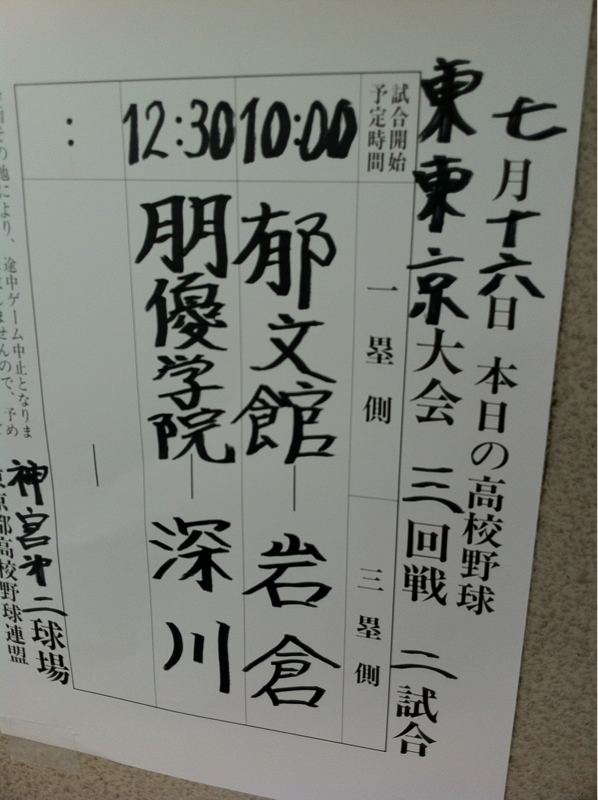 七月十六日 本日の高校野球
東東京大会 三回戦 二試合
試合開始
予定時間
一塁側
三塁側
10:00
郁文館
—
岩倉
12:30
朋優学院
—
深川
:
—
の他により、途中ゲーム中止となりま
ませんので、予め
神宮第二球場
東京都高校野球連盟